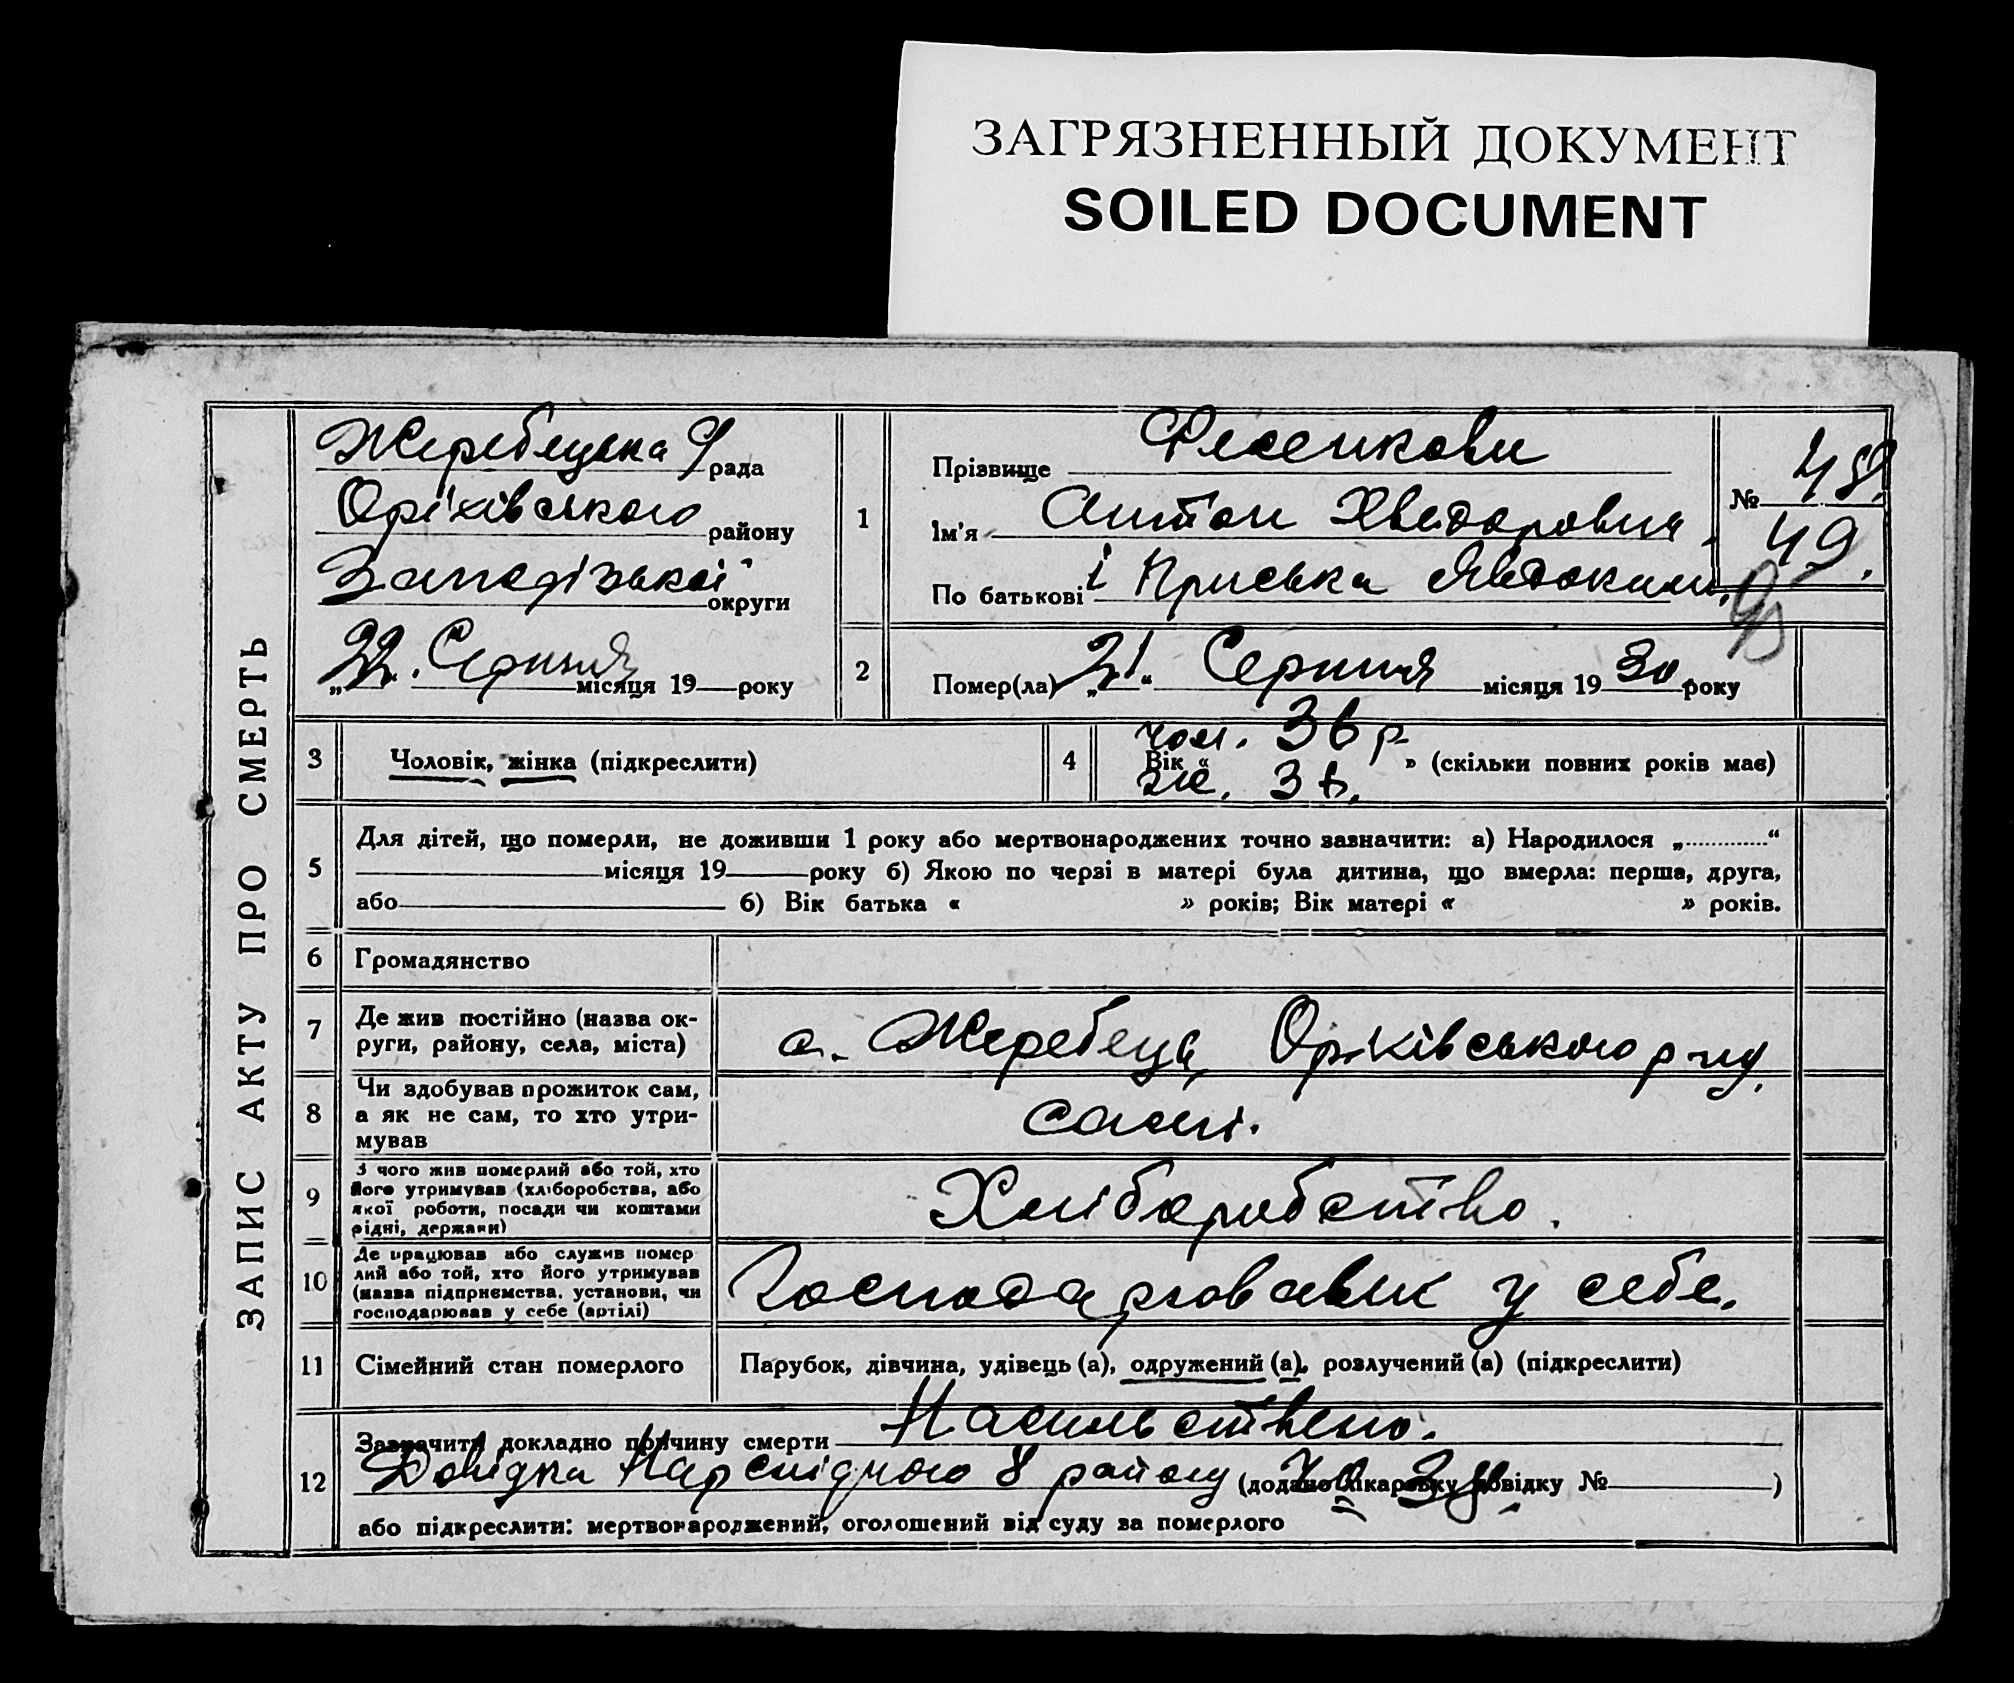 ЗАГРЯЗНЕННЫЙ ДОКУМЕНТ
SOILED DOCUMENT
ЗАПИС АКТУ ПРО СМЕРТЬ
Жеребецька с/рада
Оріхівського району
Запорізької округи
„22“ Серпня місяця 19 року
1
Прізвище Фесенкови
Ім'я Антон Хведорович
По батькові і Приська Явдоким.
№ 48.
49.
2
Помер(ла) „21“ Серпня місяця 1930 року
3
Чоловік, жінка (підкреслити)
4
чол. 36 р
Вік « » (скільки повних років має)
же. 36.
5
Для дітей, що померли, не доживши 1 року або мертвонароджених точно зазначити: а) Народилося „.............“
місяця 19 року б) Якою по черзі в матері була дитина, що вмерла: перша, друга,
або б) Вік батька « » років; Вік матері « » років.
6
Громадянство
7
Де жив постійно (назва ок-
руги, району, села, міста)
с. Жеребець, Оріхівського р-ну.
8
Чи здобував прожиток сам,
а як не сам, то хто утри-
мував
самі.
9
З чого жив померлий або той, хто
його утримував (хліборобства, або
якої роботи, посади чи коштами
рідні, держави)
Хліборобство.
10
Де працював або служив помер
лий або той, хто його утримував
(назва підприємства, установи, чи
господарював у себе (артілі)
Господарювавши у себе.
11
Сімейний стан померлого
Парубок, дівчина, удівець (а), одружений (а), розлучений (а) (підкреслити)
12
Зазначити докладно причину смерти Насильствено.
Довідка Нарслідчого 8 району (додано лікарську довідку № )
або підкреслити: мертвонароджений, оголошений від суду за померлого